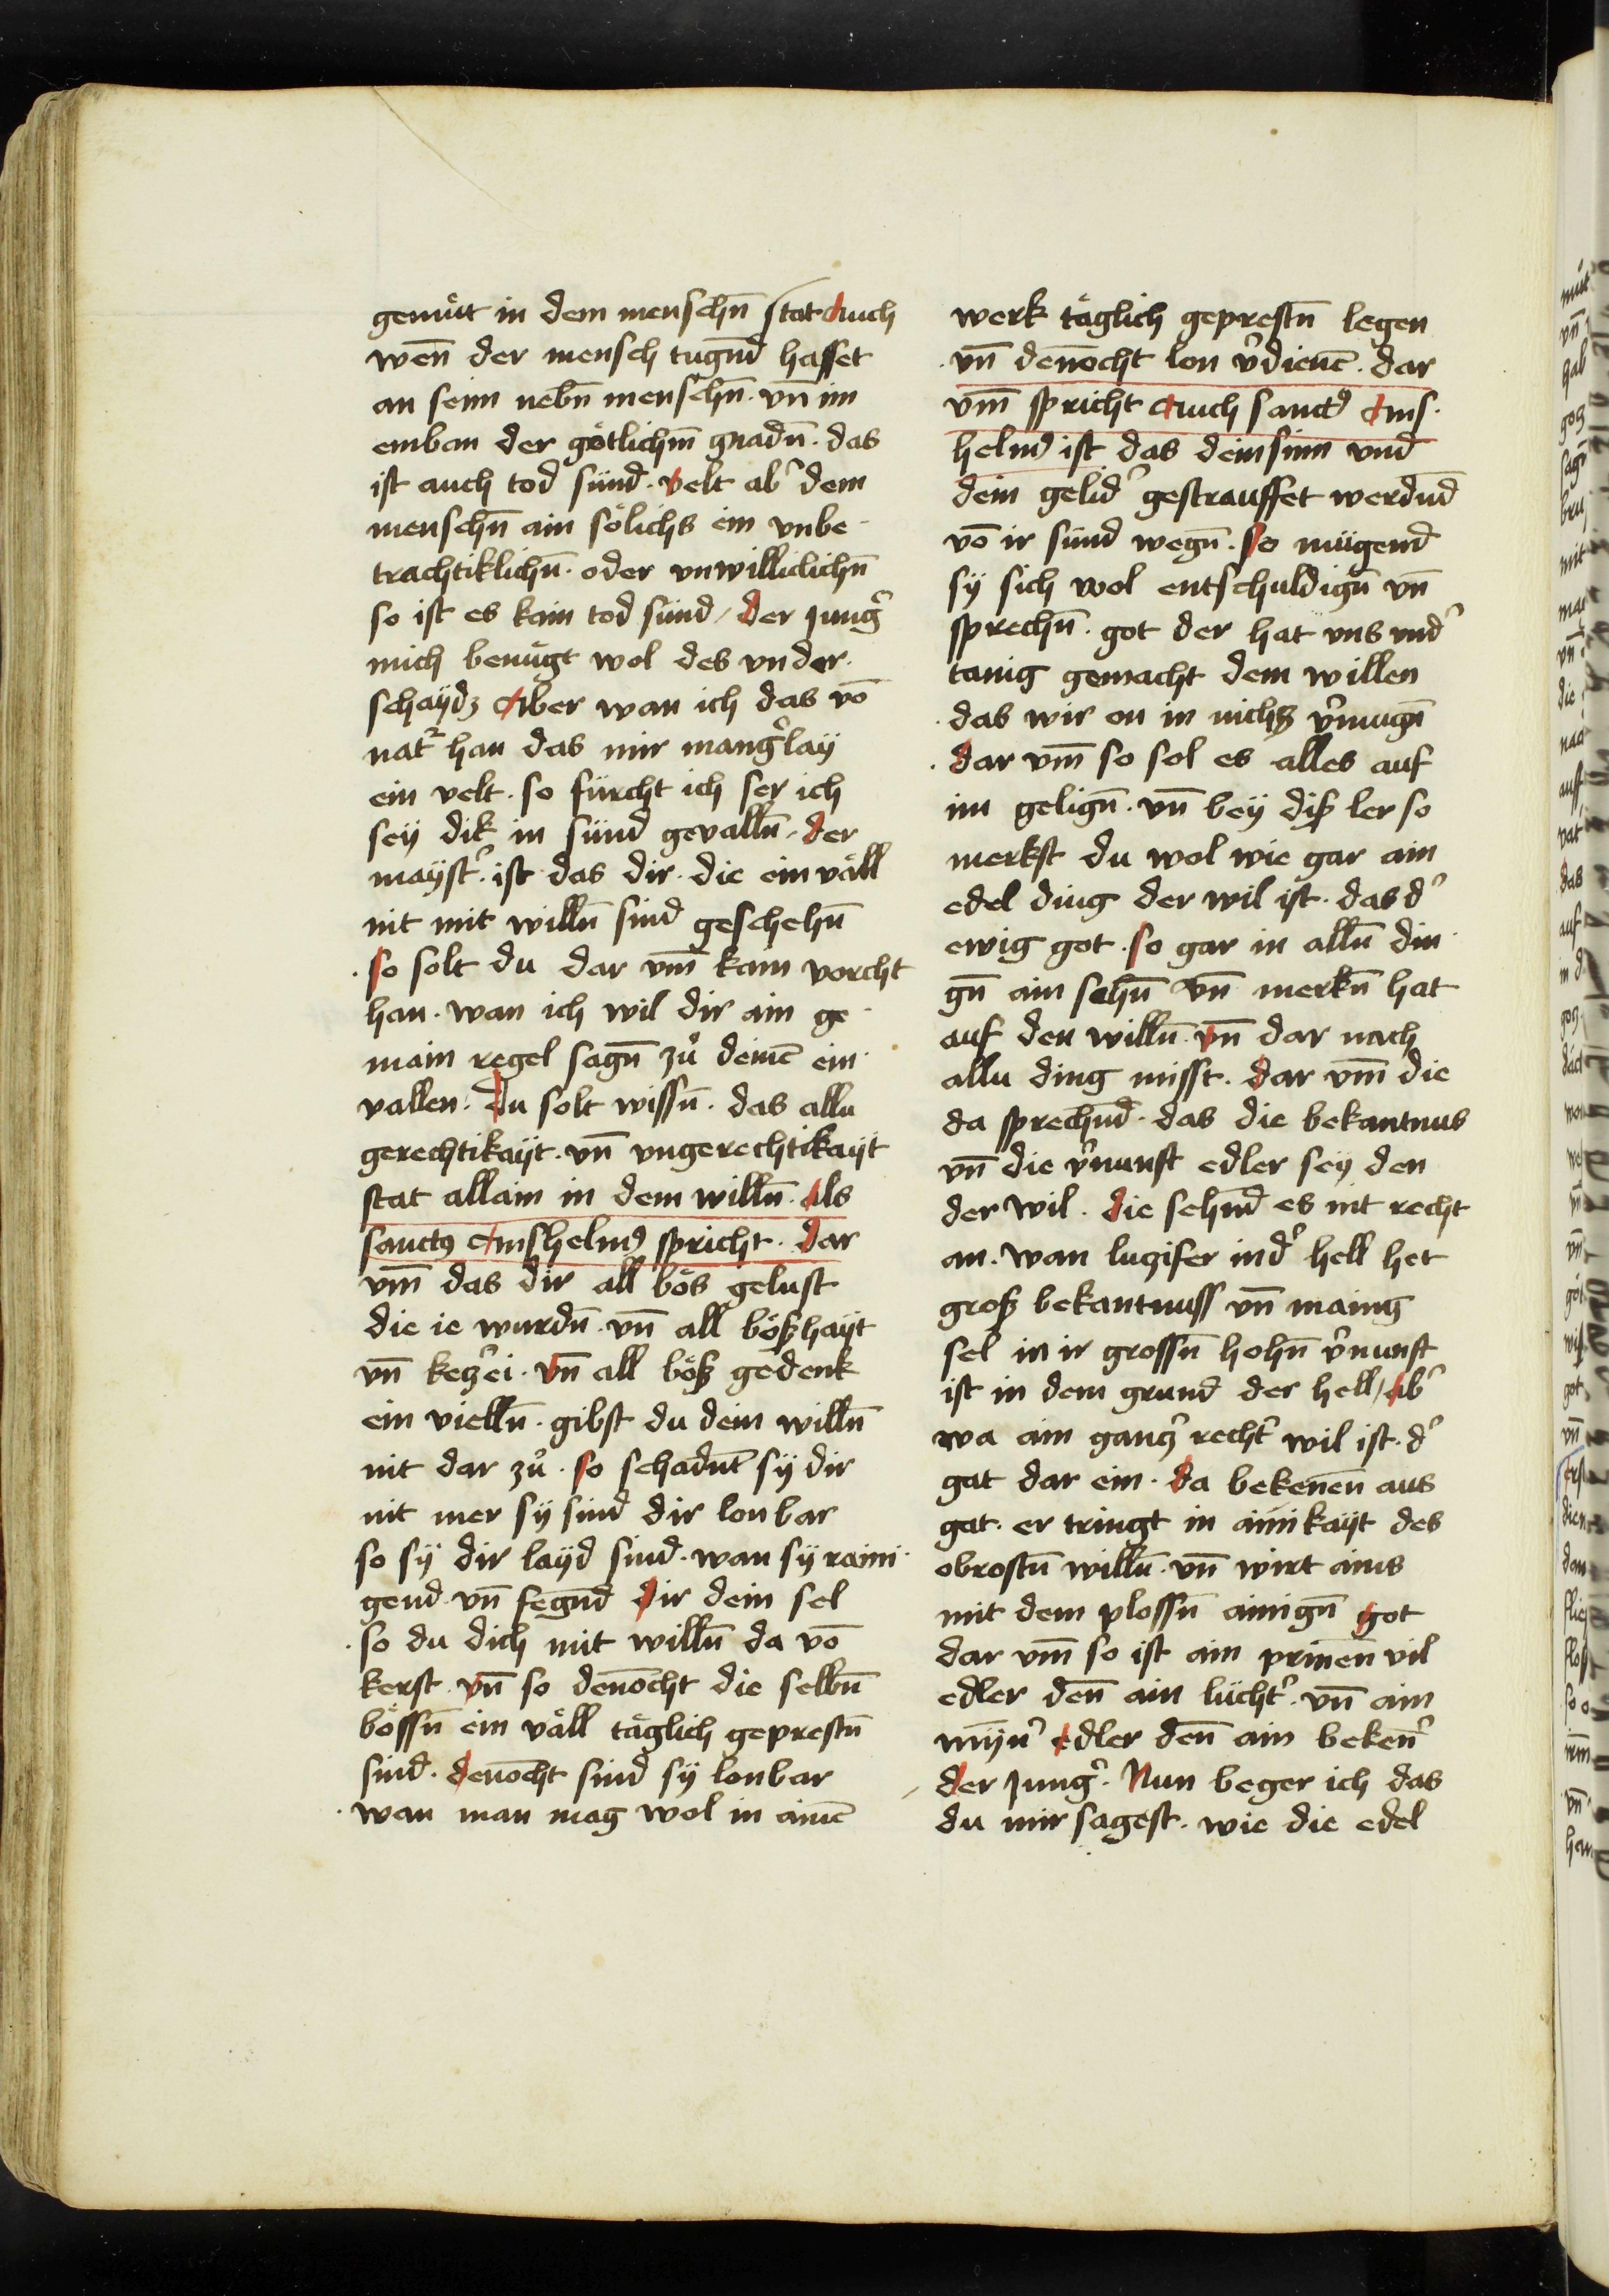 gemuͤt in dem menschn̄ stat Auch
wen̄ der mensch tugn̄d hasset
an seim nebn̄ menschn̄ · vn̄ im
enban der goͤtlichn̄ gnadn̄ · das
ist auch tod sünd · velt ab͛ dem
menschn̄ ain soͤlichs ein vnbe·
trachtiklichn̄ · oder vnwilliclichn̄
so ist es kain tod sünd / der Jung͛
mich benuͤgt wol des vnder·
schaydꝫ Aber wan ich das vō
nat͛ han das mir mang͛lay
ein velt · so fürcht ich ser ich
sey dik in sünd gevalln̄ · der
mayst͛ · ist das dir · die ein vaͤll
nit mit willn̄ sind geschehn̄
· so solt du dar vm̄ kam vorcht
han · wan ich wil dir ain ge·
main regel sagn̄ zuͦ deinē ein·
vallen · du solt wissn̄ · das allu
gerechtikayt · vn̄ vngerechtikayt
stat allain in dem willn̄ · Als
sanctꝰ Anshelmꝰ spricht · dar
vm̄ das dir all boͤs gelust
die ie wurdn̄ · vn̄ all boͤßhayt
vn̄ ketz͛ei · vn̄ all boͤß gedenk
ein vielln̄ · gibst du dein willn̄
nit dar zuͦ · so schadn̄t sy dir
nit mer sy sind dir lonbar
so sy dir layd sind · wan sy raini·
gend vn̄ fegn̄d dir dein sel
· so du dich mit willn̄ da vō
kerst · vn̄ so den̄ocht die selbn̄
boͤssn̄ ein vaͤll taͤglich geprestn̄
sind · den̄ocht sind sy lonbar
· wan man mag wol in ainē
werk taͤglich geprestn̄ legen
· vn̄ den̄ocht lon v͛dienē · dar
vm̄ spricht Auch sanctꝰ Ans·
helmꝰ ist das dein sinn vnd
dein gelid͛ gestrauffet werdn̄d
vō ir sünd wegn̄ · so mügend
sy sich wol entschuldign̄ vn̄
sprechn̄ · got der hat vns vnd͛
tanig gemacht dem willen
· das wir on in nichtz v͛mugn̄
· dar vm̄ so sol es alles auf
im gelign̄ · vn̄ bey diß ler so
merkst du wol wie gar ain
edel ding der wil ist · das d͛
ewig got · so gar in alln̄ din·
gn̄ ain sehn̄ vn̄ merkn̄ hat
auf den willn̄ · vn̄ dar nach
allu ding misst · dar vm̄ die
da sprechn̄d · das die bekantnus
vn̄ die v͛nunft edler sey den
der wil · die sehn̄d es nit recht
an · wan luzifer in d͛ hell het
groß bekantnuss vn̄ maing
sel in ir grossn̄ hohn̄ v͛nunft
ist in dem grund der hell / Ab͛
wa ain gantz͛ recht͛ wil ist · d͛
gat dar ein · da beken̄en aus
gat · er tringt in ainikayt des
obrostn̄ willn̄ · vn̄ wirt ains
mit dem plossn̄ ainign̄ got
dar vm̄ so ist ain prin̄en vil
edler den̄ ain lücht͛ · vn̄ ain
myn͛ edler den̄ ain beken̄͛
der Jung͛ · Nun beger ich das
du mir sagest · wie die edel